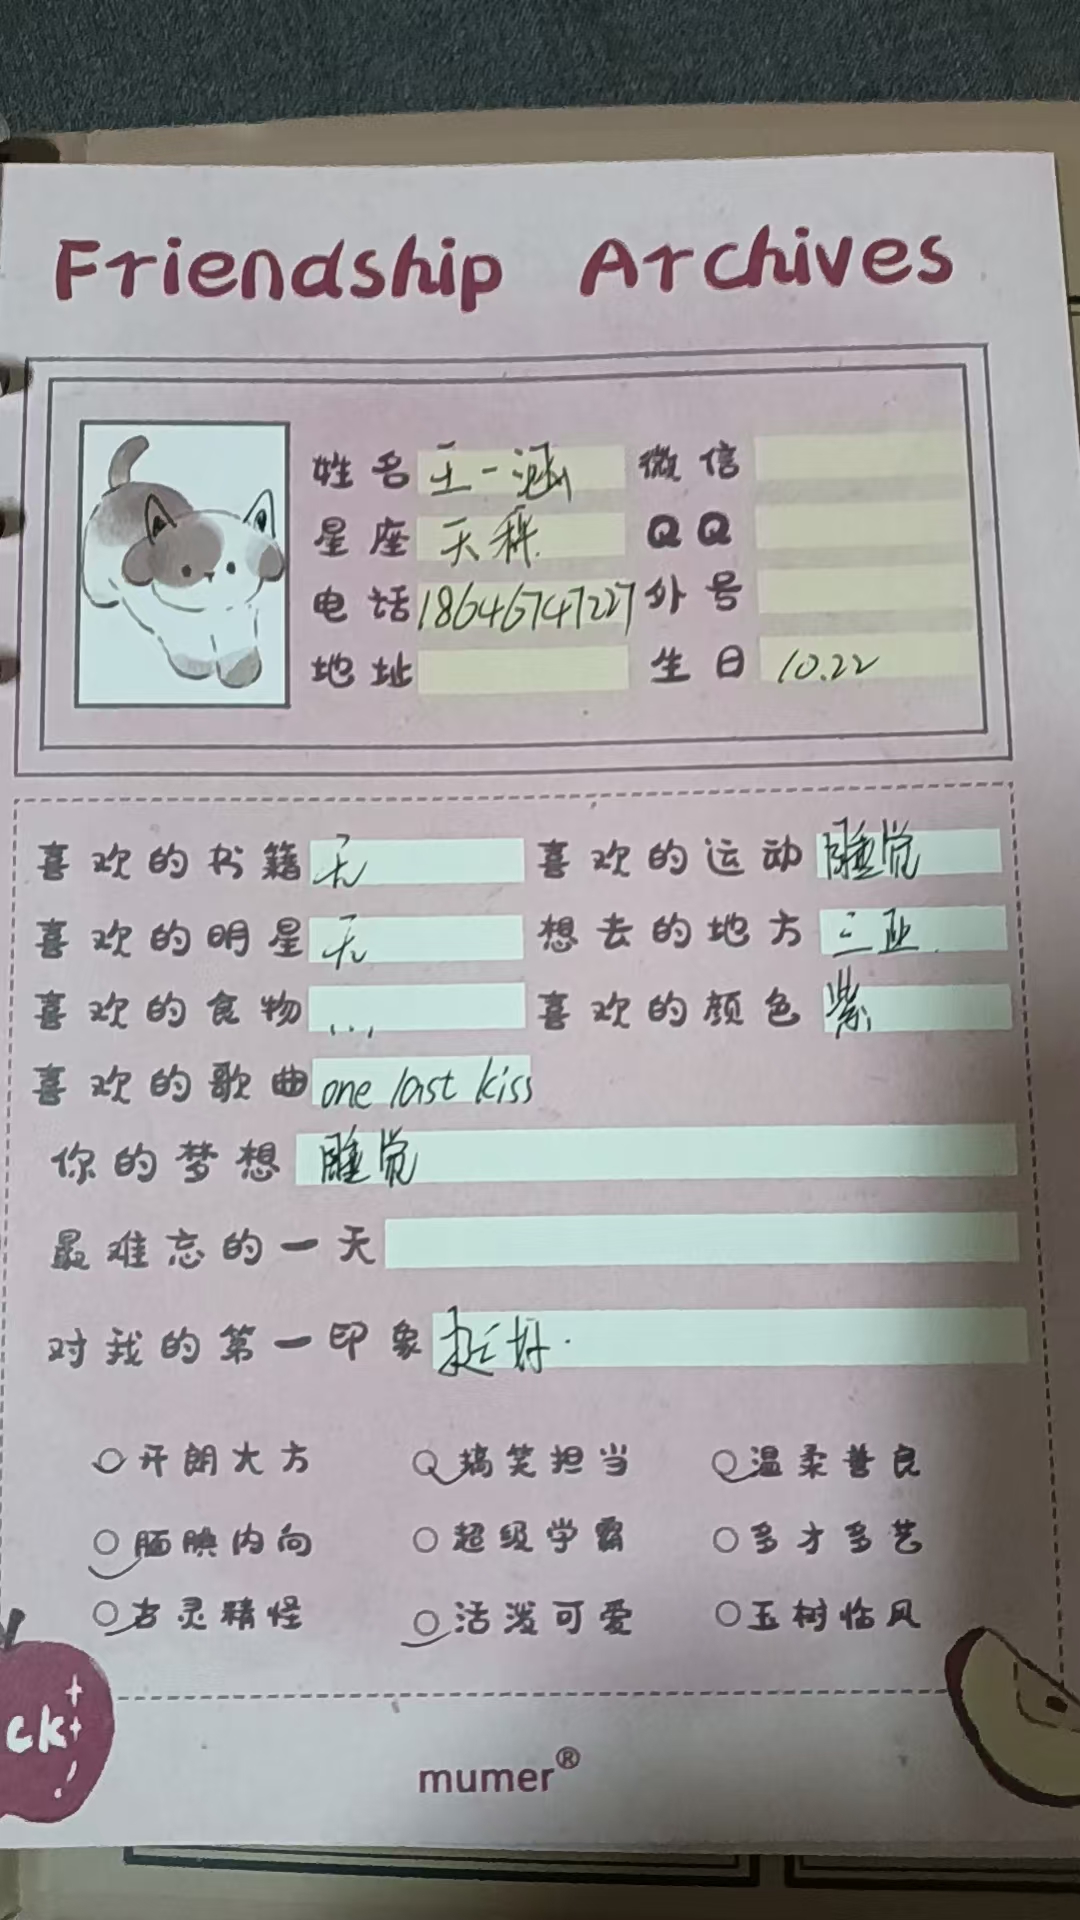 Friendship Archives
姓名 王一涵 微信
星座 天秤 QQ
电话 18646747227 外号
地址 生日 10.22
喜欢的书籍 无 喜欢的运动 睡觉
喜欢的明星 无 想去的地方 三亚
喜欢的食物 ... 喜欢的颜色 紫
喜欢的歌曲 one last kiss
你的梦想 睡觉
最难忘的一天
对我的第一印象 挺好.
开朗大方 搞笑担当 温柔善良
腼腆内向 超级学霸 多才多艺
古灵精怪 活泼可爱 玉树临风
ck
mumer®